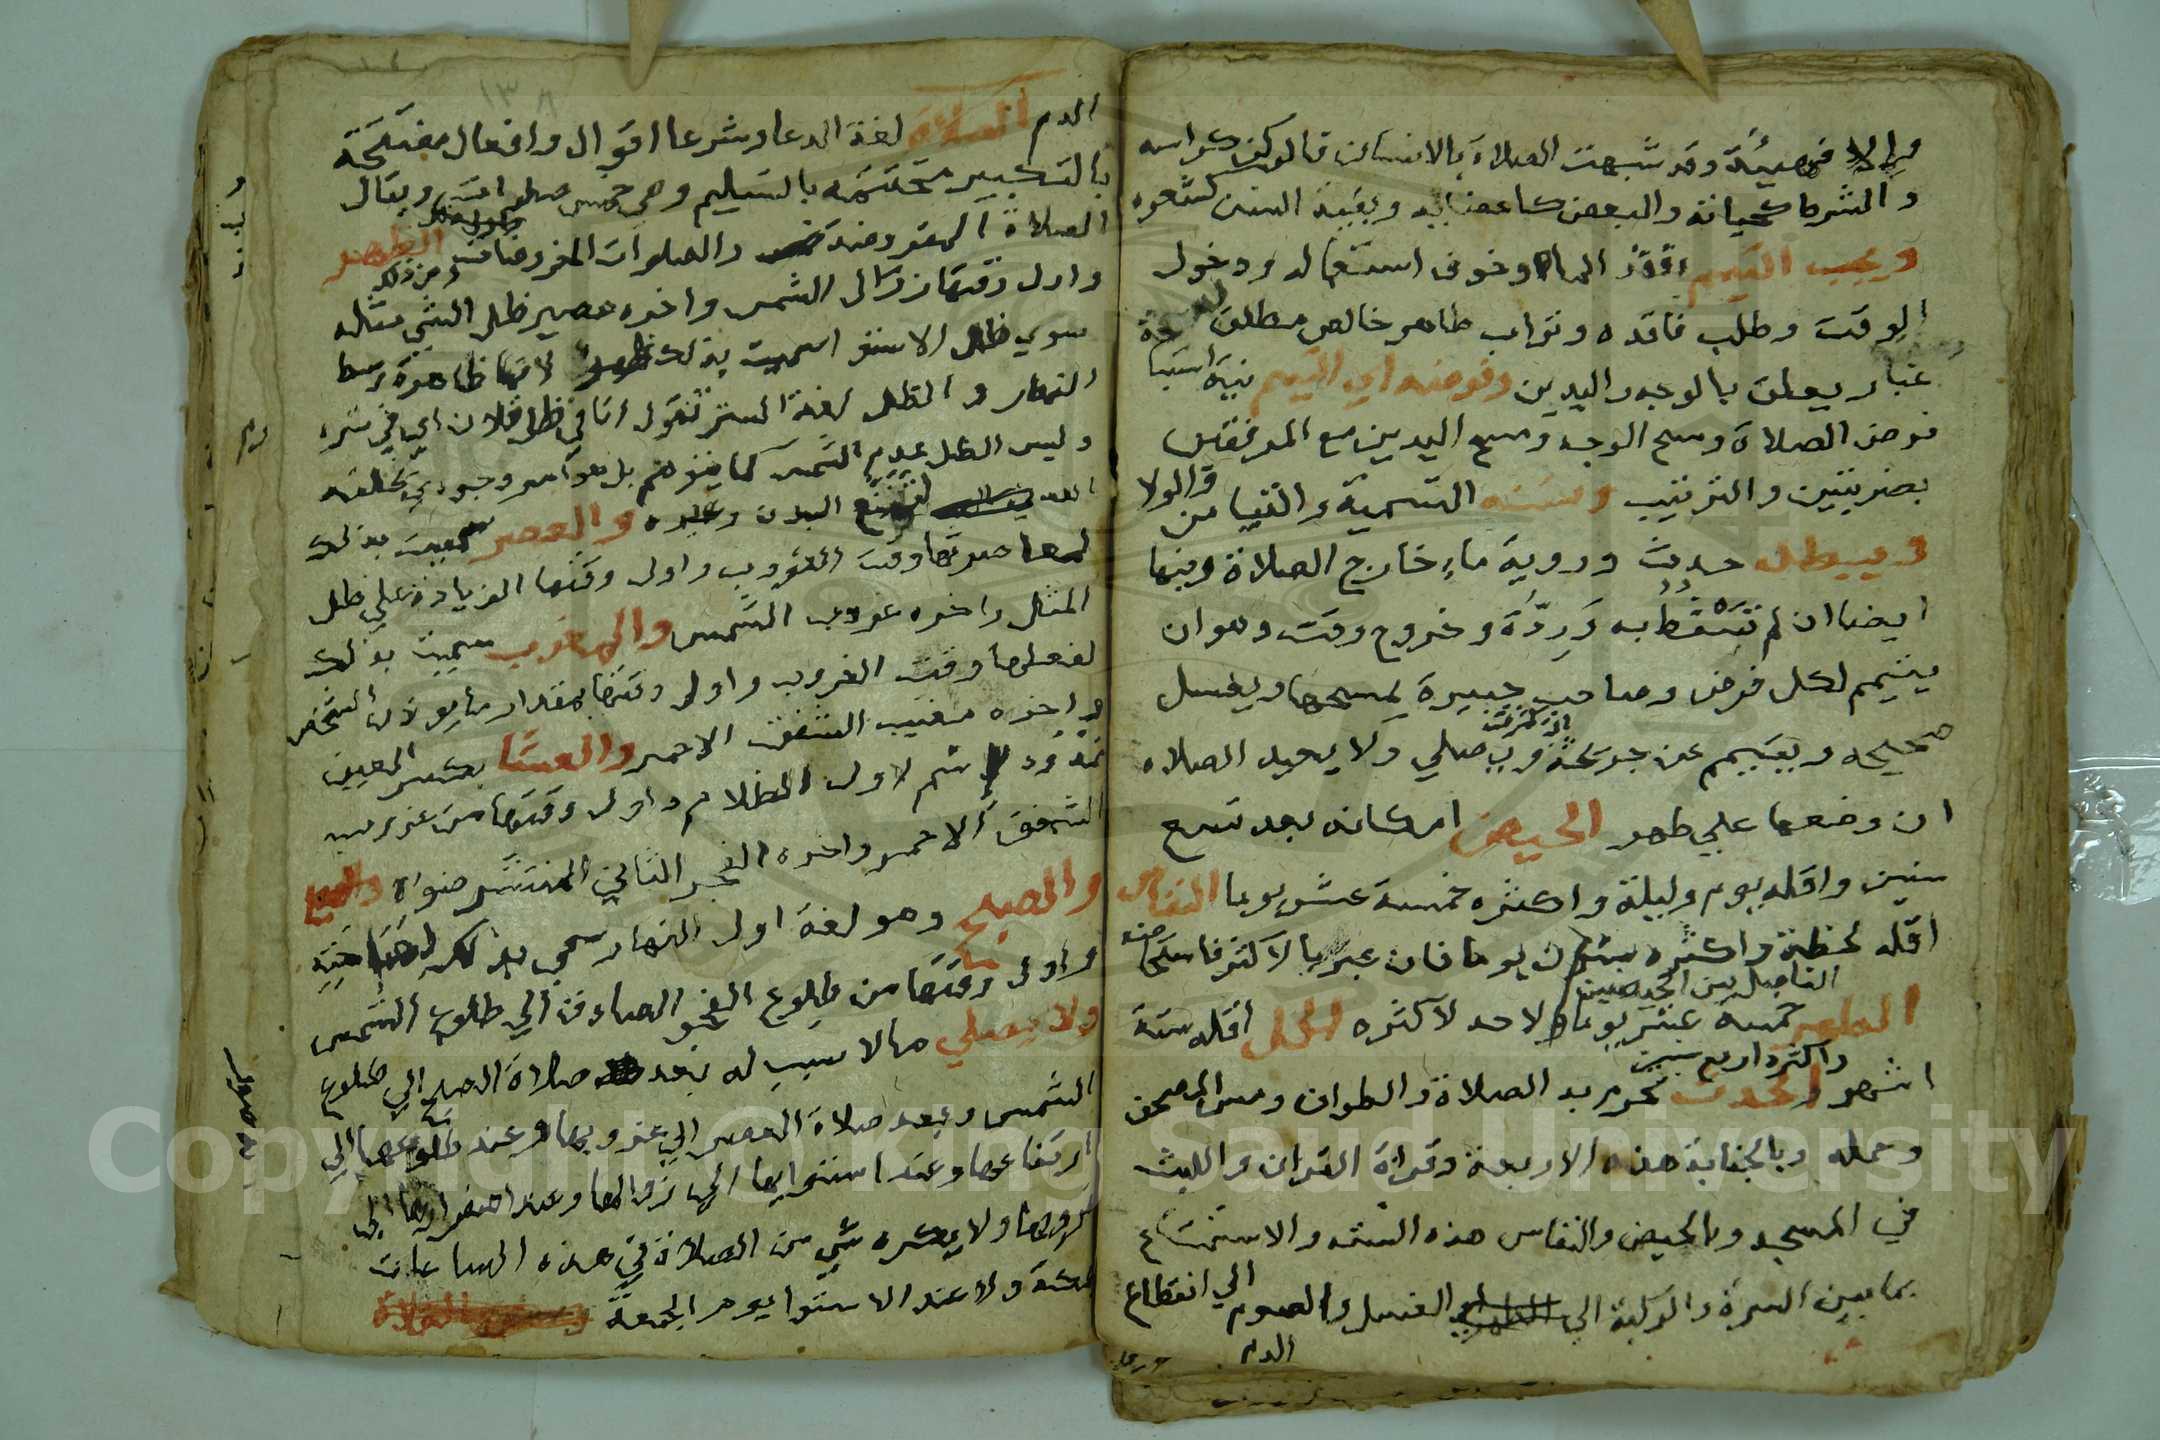 والا فهيئة وقد شبهت الصلاة بالانسان فالركن كراسه
والشرط كحياته والبعض كاعضائه وبقية السنن كشعوره
ويجب التيمم بفقد الماء وخوف استعماله ودخول
الوقت وطلب فاقده وتراب طاهر خالص مطلق له
غبار يعلق بالوجه واليدين وفرضه اي التيمم نية استباحة
فرض الصلاة ومسح الوجه ومسح اليدين مع المرفقين
بضربتين والترتيب وسننه التسمية والتيامن والولا
ويبطله حدث وروية ماء خارج الصلاة وفيها
ايضا ان لم تسقط به وردّة وخروج وقت وهو ان
يتيمم لكل فرض وصاحب جبيرة يمسحها ويغسل
صحيحه ويتيمم عن جرحه ويصلي ولا يعيد الصلاه
ان وضعها علي طهر الحيض امكانه بعد تسع
سنين واقله يوم وليلة واكثره خمسة عشر يوما النفاس
اقله لحظة واكثره ستون يوما فان عبر الاكثر فاستحاضه
الفاصل بين الحيضين
الطهر خمسة عشر يوما ولا حد لاكثره الحمل اقله ستة
واكثره اربع سنين
اشهر والحدث تحرم به الصلاة والطواف ومس المصحف
وحمله وبالجنابة هذه الاربعة وقراة القران واللبث
في المسجد وبالحيض والنفاس هذه الستة والاستمتاع
بما بين السرة والركبة الي الغسل والصوم الي انقطاع
الدم
الدم الصلاة لغة الدعا وشرعا اقوال وافعال مفتتحة
بالتكبير مختتمة بالتسليم وهي خمس صلوات ويقال
الصلاة المفروضة والصلوات المفروضات الظهر
واول وقتها زوال الشمس واخره مصير ظل الشي مثله
سوي ظل الاستوا سميت بذلك لانها ظاهرة وسط
النهار والظل لغة الستر تقول انا في ظل فلان اي في ستره
وليس الظل عدم الشمس كما يتوهم بل هو امر وجودي يخلقه
الله لنفع البدن وغيره والعصر سميت بذلك
لمعاصرتها وقت الغروب واول وقتها الزيادة علي ظل
المثل واخره غروب الشمس والمغرب سميت بذلك
لفعلها وقت الغروب واول وقتها بمقدار ما يوذن الشخص
واخره مغيب الشفق الاحمر والعشا بكسر العين
ممدود اسم لاول الظلام واول وقتها من غروب
الشفق الاحمر واخره الفجر الثاني المنتشر ضوءه
والصبح وهو لغة اول النهار سمي بذلك
واول وقتها من طلوع الفجر الصادق الي طلوع الشمس
ولا يصلي ما لا سبب له بعد صلاة الصبح الي طلوع
الشمس وبعد صلاة العصر الي غروبها وعند طلوعها الي
ارتفاعها وعند استوايها الي زوالها وعند اصفرارها الي
غروبها ولا يكره شي من الصلاة في هذه الساعات
بمكة ولا عند الاستوا يوم الجمعة
Copyright © King Saud University